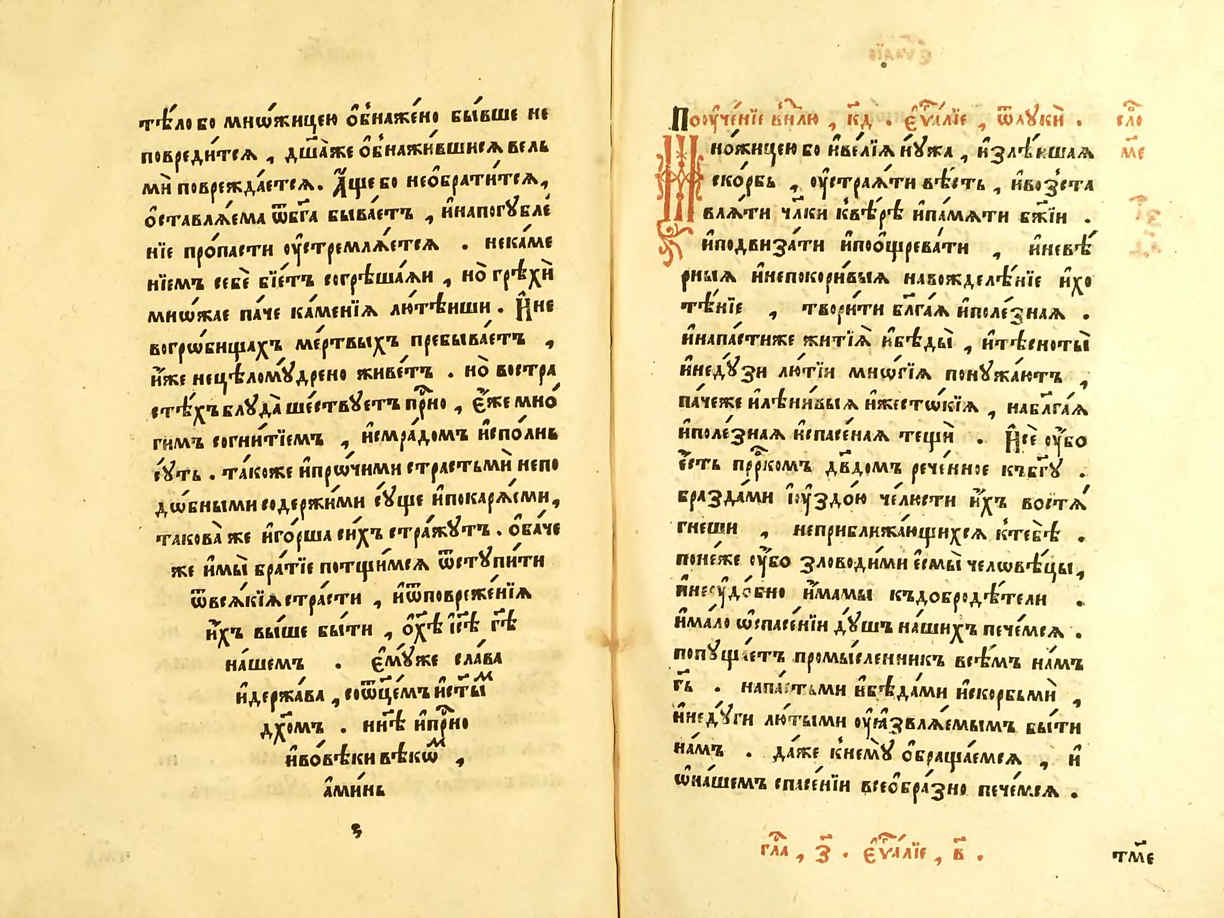 тѣ́ло бо мнѡ́жицею ѡ҆бнаже́но бы́вше не
повреди́тсѧ , дш҃а́же ѡ҆бнажи́вшисѧ вель
мѝ поврежда́етсѧ. А҆́ще бо необрати́тсѧ,
ѡ҆ставлѧ́ема ѿбг҃а быва́етъ , и҆напогꙋбле́
нїе про́пасти ᲂу҆стремлѧ́етсѧ . нека́ме
нїемъ себѐ бїе́тъ согрѣша́ѧи , но̀ грѣхѝ
мнѡ́жае па́че ка́менїѧ лютѣ́иши . И҆́не
вогро́бищахъ ме́ртвыхъ пребыва́етъ ,
и҆́же нецѣломꙋ́дрено живе́тъ . но̀ востра
сте́хъ блꙋда̀ ше́ствꙋетъ при́сно , є҆́же мно́
гимъ согни́тїемъ , и҆смра́домъ и҆спо́лнь
сꙋть . та́коже и҆про́чими страстьмѝ непо
дѡ́бными содержи́ми сꙋще и҆покарѧ́еми,
такова̀ же и҆го́рша си́хъ стра́жꙋтъ . ѻ҆ба́че
же и҆мы̀ бра́тїе потщи́мсѧ ѿстꙋпи́ти
ѿвсѧ́кїѧ стра́сти , и҆ѿповреже́нїѧ
и҆́хъ вы́ше бы́ти , ѡ҆хѣ̀ і҆с҃ѣ гд҇ѣ
на́шемъ . є҆мꙋ́же сла́ва
и҆держа́ва , соѿце́мъ и҆ст҃ы́м
дх҃омъ . нн҃ѣ и҆при́сно
и҆во́вѣки вѣкѡ́м ,
а҆ми́нь
Поᲂуче́нїе внл҃ю , к҃д . є҆ѵⷢ҇а́лїе , ѿлꙋкѝ . сло
Мно́жицею бо и҆ве́лїѧ нꙋ́жа , и҆злѣ́ишаѧ ме
ско́рбь , ᲂу҆страѧ́ти вѣ́сть , и҆во́зста
влѧ́ти чл҃ки квѣ́рѣ и҆па́мѧти бж҃їи .
и҆подвиза́ти и҆поѡ҆щрева́ти , и҆невѣ́
рныѧ и҆непокори́выѧ навожделѣ́нїе и҆хо
тѣ́нїе , твори́ти бл҃га́ѧ и҆поле́знаѧ .
и҆напа́стиже житїѧ̀ и҆бѣды̀ , и҆тѣсноты̀
и҆недꙋ́зи лю́тїи мно́гїѧ понꙋжа́ютъ ,
па́чеже и҆лѣни́выѧ и҆жесто́кїѧ , набл҃га́ѧ
и҆поле́знаѧ и҆спасе́наѧ тещѝ . И҆сѐ ᲂу҆́бо
є҆́сть прⷪ҇ркомъ дв҃домъ рече́нное къбг҃ꙋ .
бразда́ми и҆ᲂу҆здо́ю че́люсти и҆́хъ востѧ́
гнеши , неприближа́ющихсѧ ктебѣ̀ .
поне́же ᲂу҆́бо зловоди́ми є҆смы̀ челѡвѣ́цы,
и҆неᲂу҆до́бно и҆́мамы къдобродѣ́тели .
и҆ма́ло ѡ҆спасе́нїи дꙋ́шъ на́шихъ пече́мсѧ .
попꙋща́етъ промы́сленникъ всѣ́мъ на́мъ
гд҇ь . напа́стьми и҆бѣда́ми и҆скорбьмѝ ,
и҆недꙋ́ги лю́тыми ᲂу҆ѧзвлѧ́емымъ бы́ти
на́мъ . да́же кнемꙋ̀ ѡ҆браща́емсѧ , и҆
ѡ҆на́шемъ спасе́нїи всеѡбра́зно пече́мсѧ .
гла , з҃ . є҆ѵⷢ҇а́лїе , в҃ .
тм҃е